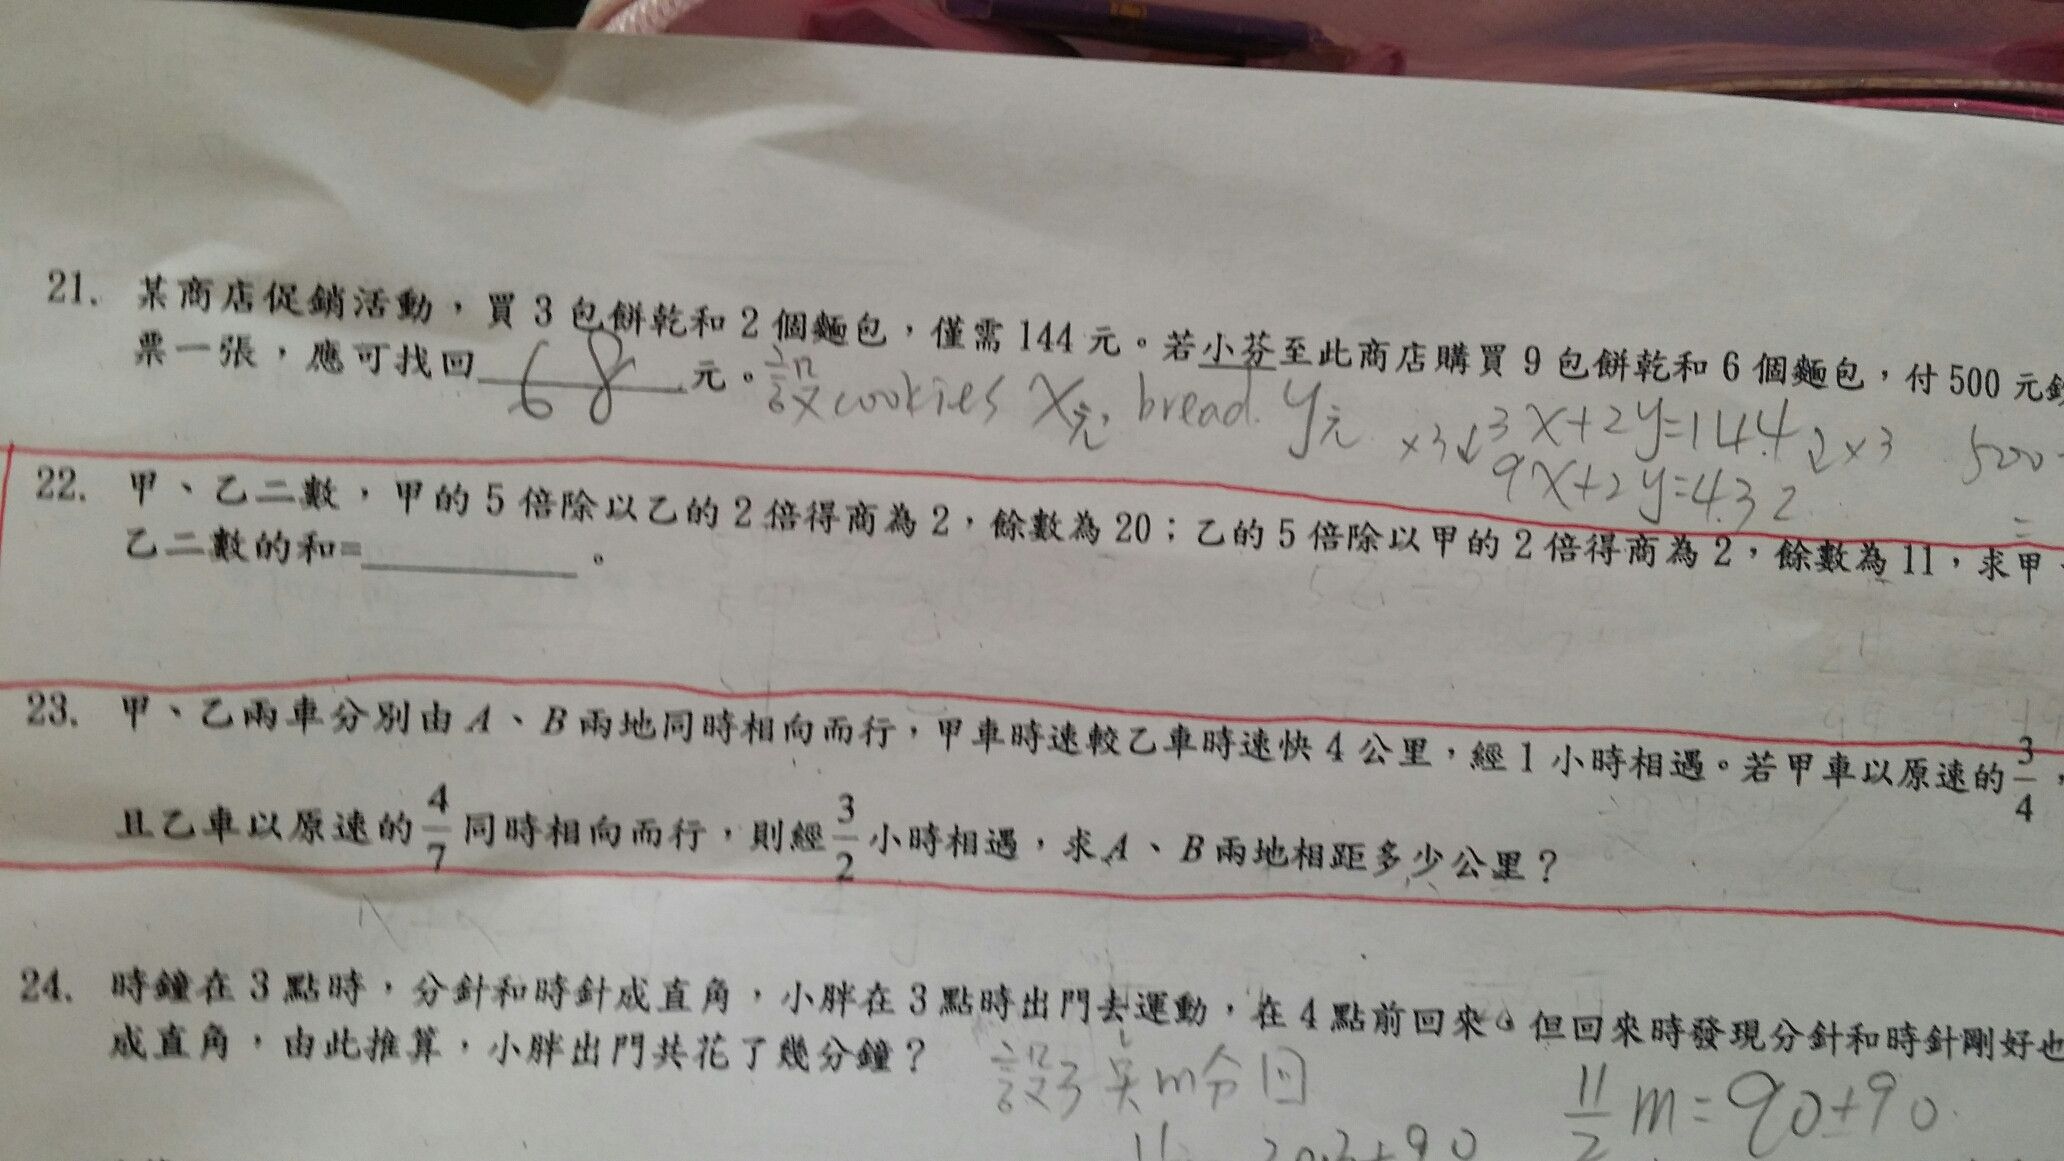 21. 某商店促銷活動，買 3 包餅乾和 2 個麵包，僅需 144 元。若小芬至此商店購買 9 包餅乾和 6 個麵包，付 500 元鈔
票一張，應可找回 68 元。設cookies x元, bread y元
×3↓ 3x+2y=144 ↓×3 500-
9x+2y=432 =
22. 甲、乙二數，甲的 5 倍除以乙的 2 倍得商為 2，餘數為 20；乙的 5 倍除以甲的 2 倍得商為 2，餘數為 11，求甲、
乙二數的和=________。
23. 甲、乙兩車分別由 A、B 兩地同時相向而行，甲車時速較乙車時速快 4 公里，經 1 小時相遇。若甲車以原速的 3/4，
且乙車以原速的 4/7 同時相向而行，則經 3/2 小時相遇，求 A、B 兩地相距多少公里？
24. 時鐘在 3 點時，分針和時針成直角，小胖在 3 點時出門去運動，在 4 點前回來。但回來時發現分針和時針剛好也
成直角，由此推算，小胖出門共花了幾分鐘？
設3點m分回 11/2 m=90+90